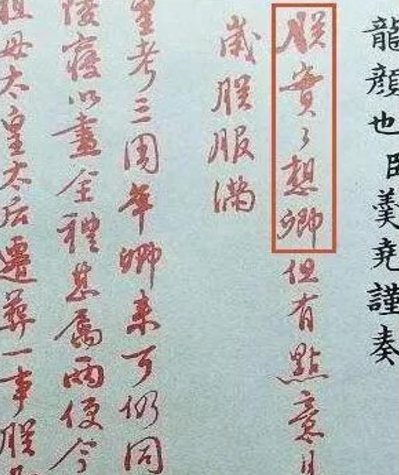 龍顏也臣羹堯謹奏
朕實々想卿但有點意
歲朕服滿
皇考三周年卿來可仍同
陵寢以盡全禮甚屬兩便今
祖母太皇太后遷葬一事朕